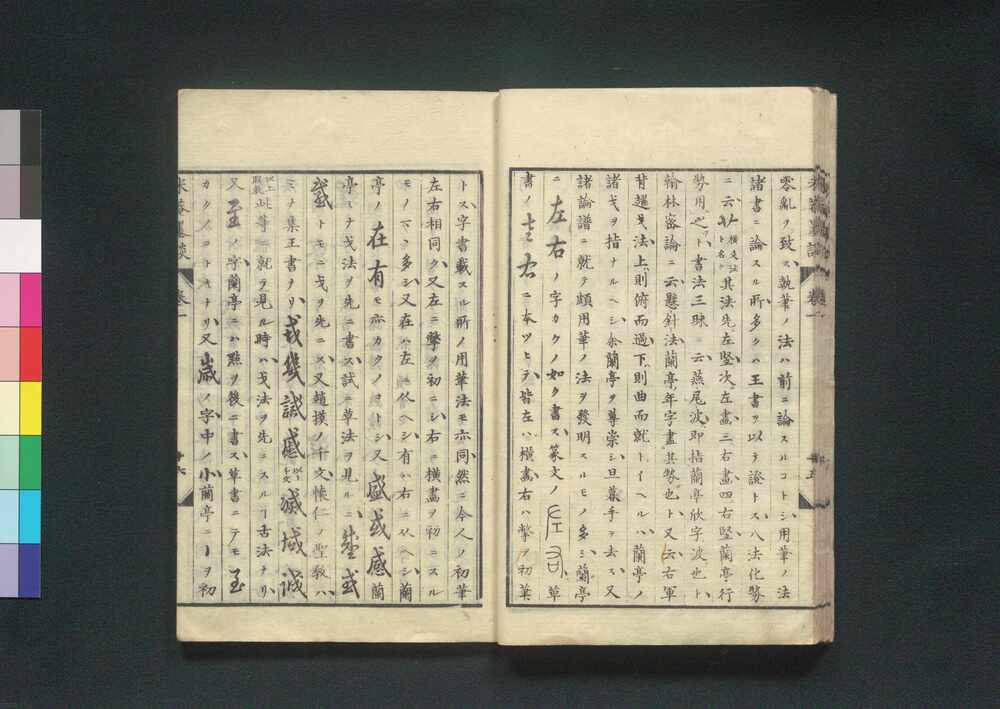 零亂ヲ致ス執筆ノ法ハ前ニ論スルコトシ用筆ノ法
諸書ニ論スル所多クハ王書ヲ以テ證トス八法化勢
ニ云 其法先左竪次左畫三右畫四右竪蘭亭行
勢用之ト書法三昧ニ云燕尾波即捨蘭亭欣字波也ト
翰林密論ニ云懸針法蘭亭年字畫其勢也ト又云右軍
背趯戈法上則俯而過下則曲而就トイヘルハ蘭亭ノ
諸戈ヲ指ナルヘシ余蘭亭ヲ尊崇シ旦暮手ヲ去ス又
諸論譜ニ就テ頗用筆ノ法ヲ發明スルモノ多シ蘭亭
ニ左右ノ字カクノ如ク書ス篆文ノ 草
書ノ 右ニ本ツヒテ皆左ハ横畫右ハ撆ヲ初筆
トス字書載スル所ノ用筆法モ亦同然ニ今人ノ初筆
左右相同ク又左ニ撆ヲ初ニシ右ニ横畫ヲ初ニスル
モノマヽ多シ又在ハ左ニ从ヘシ有ハ右ニ从ヘシ蘭
亭ノ在有モ亦カクノコトシ又盛或感蘭
亭ミナ戈法ヲ先ニ書ス試ニ草法ヲ見ルニ盛或
感トモニ戈ヲ先ニス又趙摸ノ千文懐仁ノ聖教ハ
ミナ集王書ナリ或幾誠感 滅域誠
以上取載此等ニ就テ見ル時ハ戈法ヲ先ニスルヿ古法ナリ
又至ノ字蘭亭ニハ點ヲ後ニ書ス草書ニテモ至
カクノコトキナリ又歳ノ字中ノ小蘭亭ニーヲ初
米菴墨談 巻一